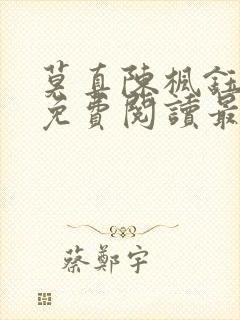 莫真陳楓鈺
免費閱讀最
蔡鄭宇